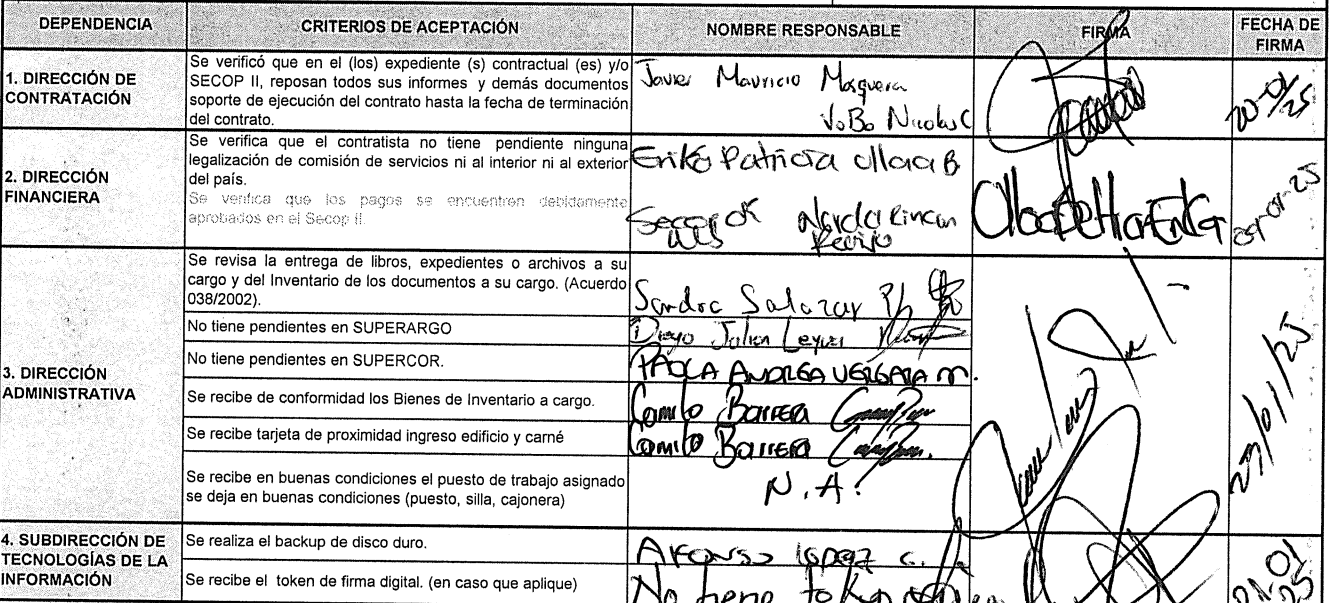 DEPENDENCIA CRITERIOS DE ACEPTACIÓN NOMBRE RESPONSABLE FIRMA FECHA DE FIRMA
1. DIRECCIÓN DE CONTRATACIÓN
Se verificó que en el (los) expediente (s) contractual (es) y/o
SECOP II, reposan todos sus informes y demás documentos
soporte de ejecución del contrato hasta la fecha de terminación
del contrato.
Javier Mauricio Mosquera
VoBo Nicolas C
20-01/25
2. DIRECCIÓN FINANCIERA
Se verifica que el contratista no tiene pendiente ninguna
legalización de comisión de servicios ni al interior ni al exterior
del país.
Se verifica que los pagos se encuentren debidamente
aprobados en el Secop II.
Erika Patricia Ulloa B
Secop ok Narda Rincon
3. DIRECCIÓN ADMINISTRATIVA
Se revisa la entrega de libros, expedientes o archivos a su
cargo y del Inventario de los documentos a su cargo. (Acuerdo
038/2002).
Sandra Salazar P/
No tiene pendientes en SUPERARGO
Diego Julian
No tiene pendientes en SUPERCOR.
PAOLA ANDREA VERGARA M.
Se recibe de conformidad los Bienes de Inventario a cargo.
Camilo Barrera
Se recibe tarjeta de proximidad ingreso edificio y carné
Camilo Barrera
Se recibe en buenas condiciones el puesto de trabajo asignado
se deja en buenas condiciones (puesto, silla, cajonera)
N.A.
4. SUBDIRECCIÓN DE TECNOLOGÍAS DE LA INFORMACIÓN
Se realiza el backup de disco duro.
Alfonso López C.
21-01
25
Se recibe el token de firma digital. (en caso que aplique)
No tiene token